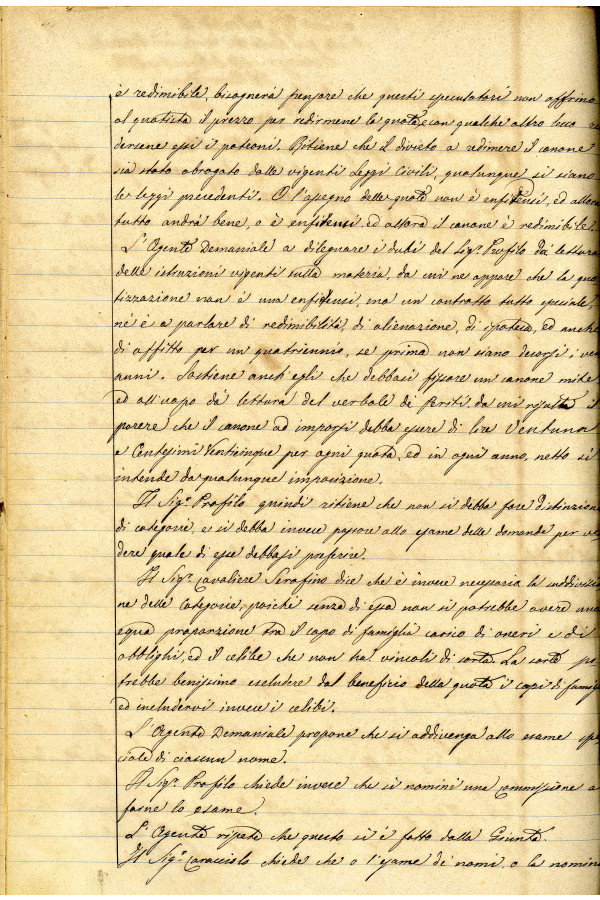 è redimibile, bisognerà pensare che questi speculatori non offrino
al quotista il prezzo per redimerne la quota, con qualche altro lucro
dersene essi i patroni. Ritiene che il divieto a redimere il canone
sia stato abrogato dalle vigenti Leggi Civili, qualunque si siano
le leggi precedenti. O l'assegno delle quote non è enfiteusi, ed allora
tutto andrà bene, o è enfiteusi ed allora il canone è redimibile.
L'Agente Demaniale a dileguare i dubî del Sig.r Profilo dà lettura
delle istruzioni vigenti sulla materia, da cui ne appare che la quo
tizzazione non è una enfiteusi, ma un contratto tutto speciale,
nè è a parlare di redimibilità, di alienazione, di ipoteca, ed anche
di affitto per un quatriennio, se prima non siano decorsi i ven
anni. Sostiene anch'egli che debbasi fissare un canone mite
ed all'uopo dà lettura del verbale dei Periti, da cui risulta il
parere che il canone ad imporsi debba essere di lire Ventuna
e Centesimi Venticinque per ogni quota, ed in ogni anno, netto si
intende da qualunque imposizione.
Il Sig.r Profilo quindi ritiene che non si debba fare distinzione
di categorie, e si debba invece passare allo esame delle domande per ve
dere quale di esse debbasi preferire.
Il Sig.r Cavaliere Serafino dice che è invece necessaria la suddivisio
ne delle Categorie, poichè senza di essa non si potrebbe avere una
equa proporzione tra il capo di famiglia carico di oneri e di
obblighi, ed il celibe che non ha vincoli di sorta. La sorte po
trebbe benissimo escludere dal beneficio della quota i capi di famiglia
ed includervi invece i celibi.
L'Agente Demaniale propone che si addivenga allo esame spe
ciale di ciascun nome.
Il Sig.r Profilo chiede invece che si nomini una commissione a
farne lo esame.
L'Agente ripete che questo si è fatto dalla Giunta.
Il Sig.r Caracciolo chiede che o l'esame dei nomi, o la nomina